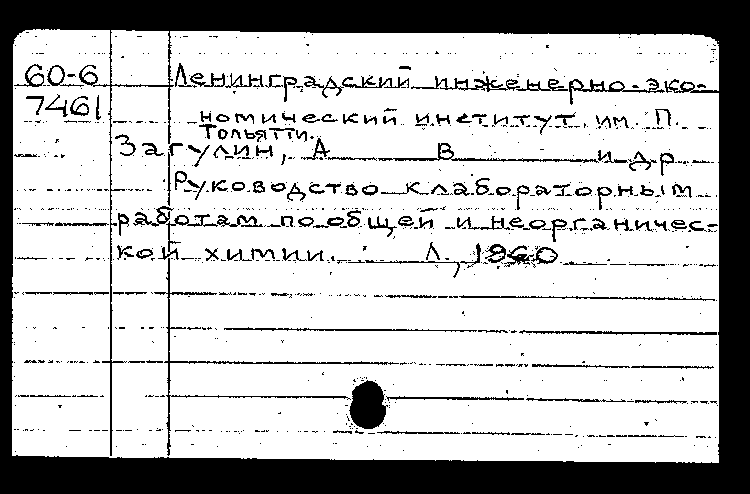 60-6
7461
Ленинградский инженерно-эко-
номический институт им. П.
Тольятти.
Загулин, А В и др
Руководство к лабораторным
работам по общей и неорганичес-
кой химии. Л., 1960